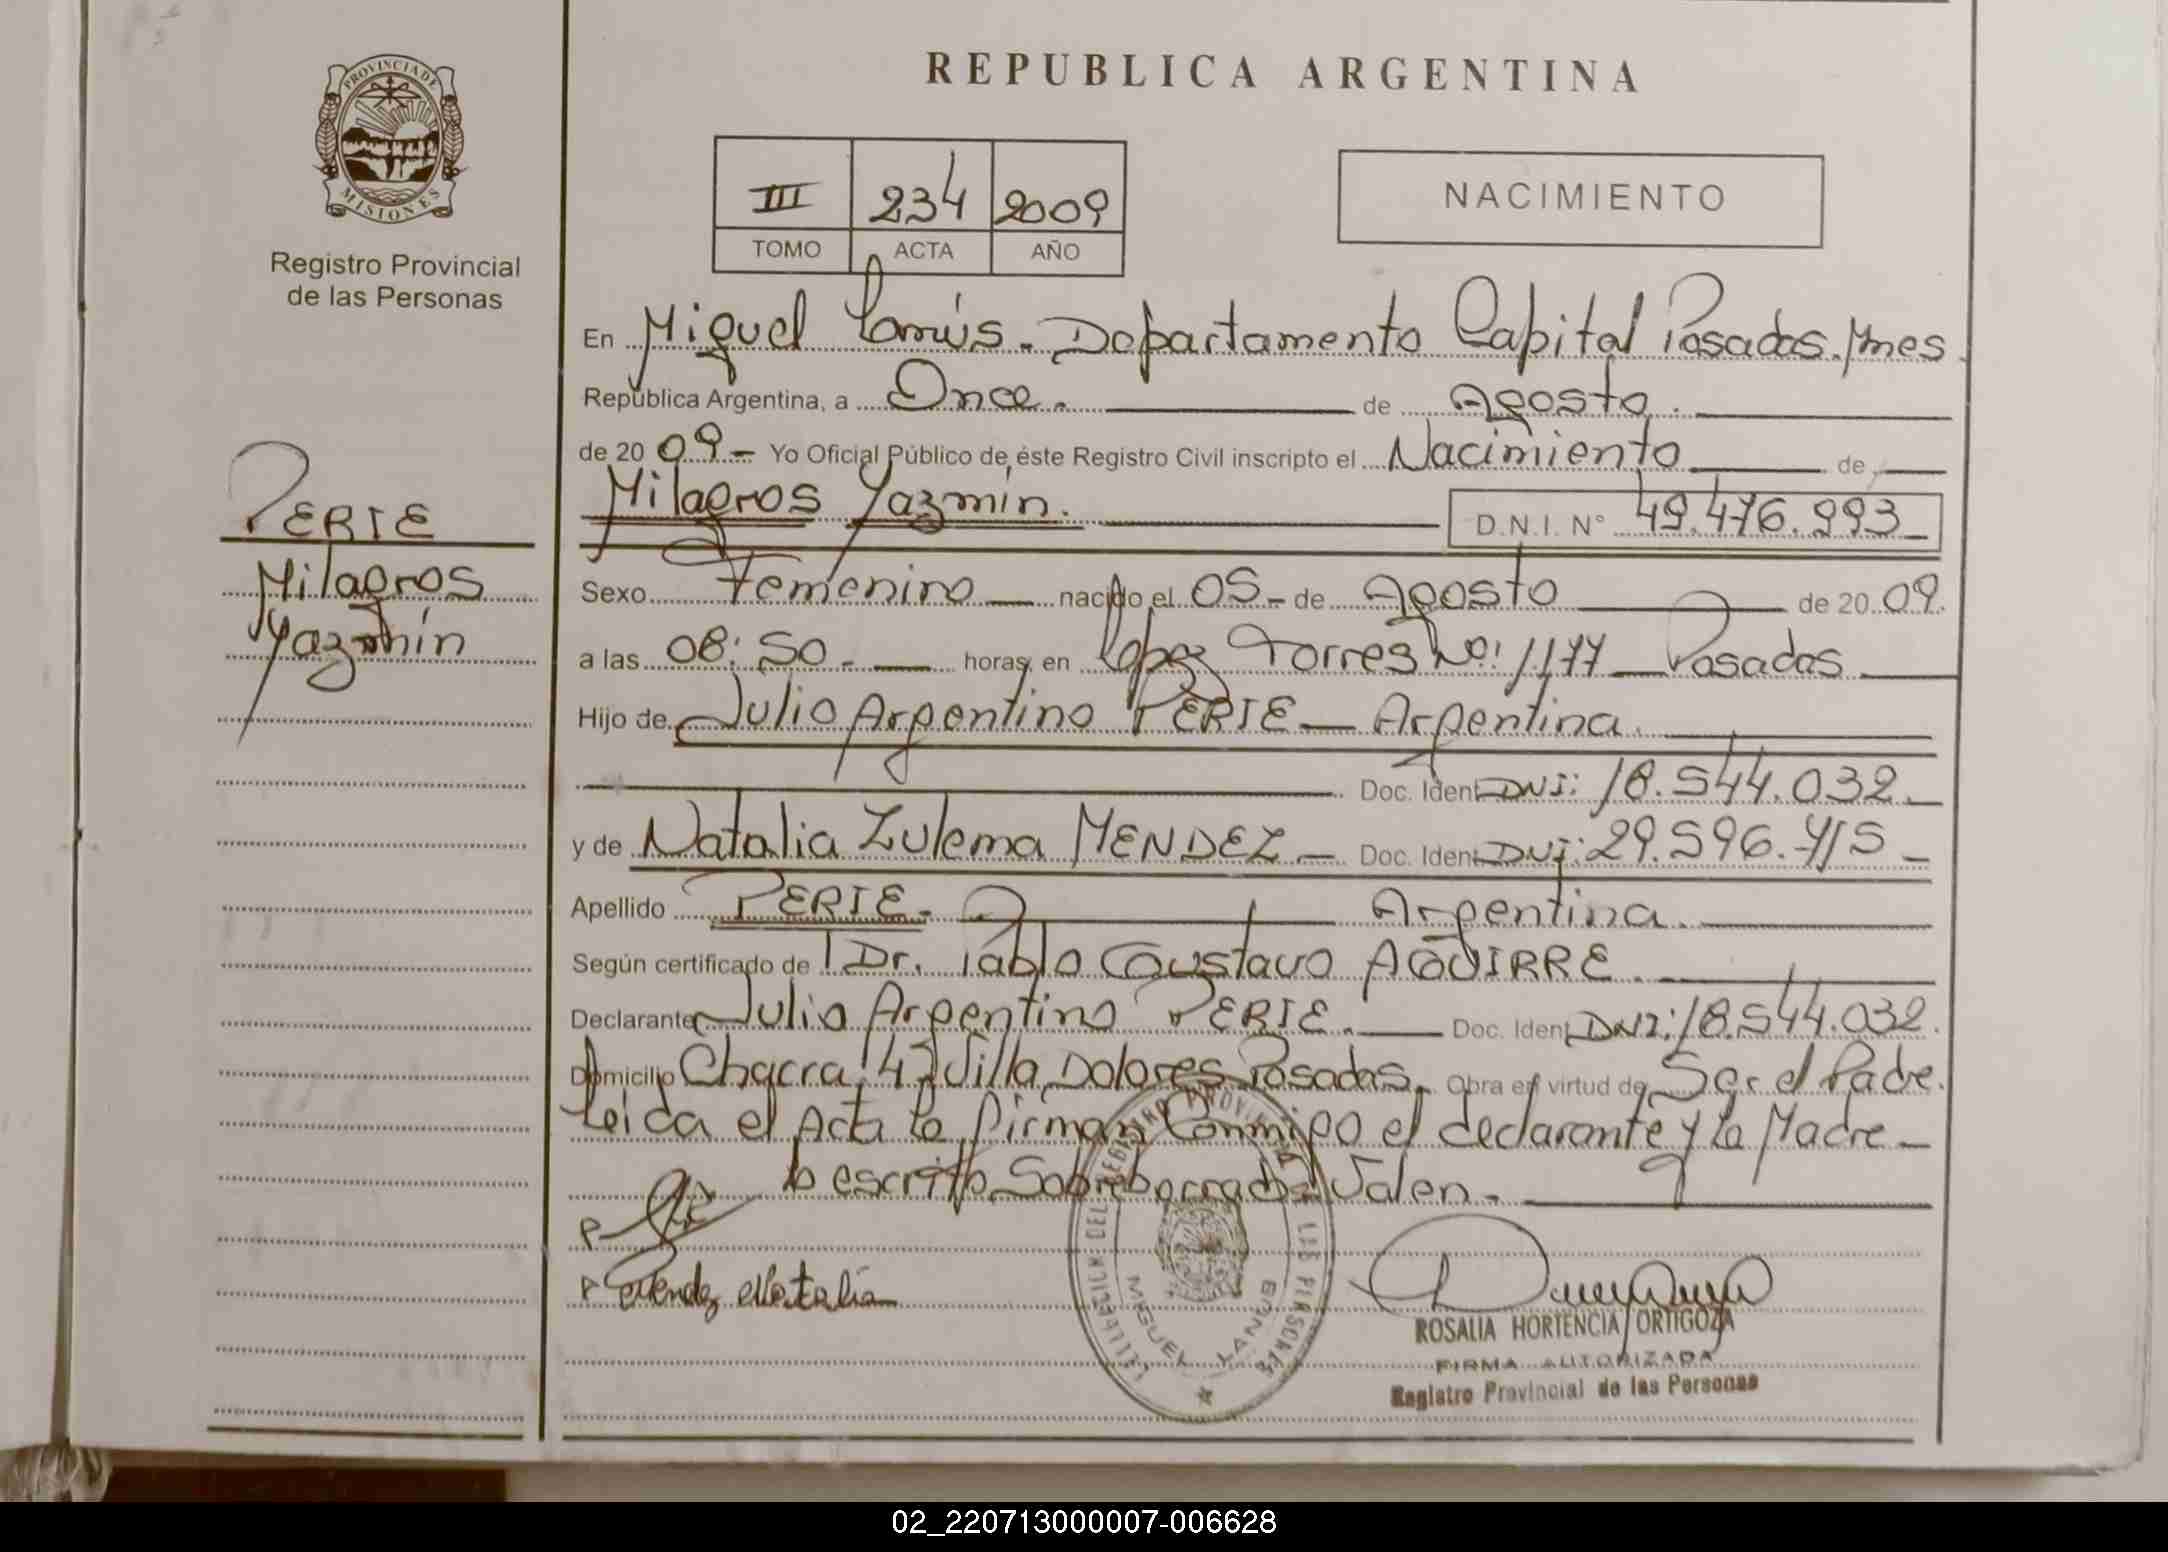 PROVINCIA DE
MISIONES
Registro Provincial
de las Personas
PERIE
Milagros
Yazmín
REPUBLICA ARGENTINA
III 234 2009
TOMO ACTA AÑO
NACIMIENTO
En Miguel Lanús. Departamento Capital Posadas. Mnes
República Argentina, a Once. de Agosto.
de 2009 Yo Oficial Público de éste Registro Civil inscripto el Nacimiento de
Milagros Yazmín. D.N.I. N° 49.476.993
Sexo Femenino nacido el 05 de Agosto de 2009.
a las 08:50 horas, en López Torres Nº: 1177 Posadas
Hijo de Julio Argentino PERIE Argentina.
Doc. Ident DNI: 18.544.032
y de Natalia Zulema MENDEZ Doc. Ident DNI: 29.596.715
Apellido PERIE. Argentina.
Según certificado de Dr. Pablo Gustavo AGUIRRE.
Declarante Julio Argentino PERIE. Doc. Ident DNI: 18.544.032.
Domicilio Chacra 47 Villa Dolores Posadas. Obra en virtud de Ser el Padre.
Leida el Acta la firman Conmigo el declarante y la Madre
lo escrito Sobreborrado Valen.
Mendez Natalia
REGISTRO PROVINCIAL DE LAS PERSONAS
MIGUEL LANUS
ROSALIA HORTENCIA ORTIGOZA
FIRMA AUTORIZADA
Registro Provincial de las Personas
02_220713000007-006628